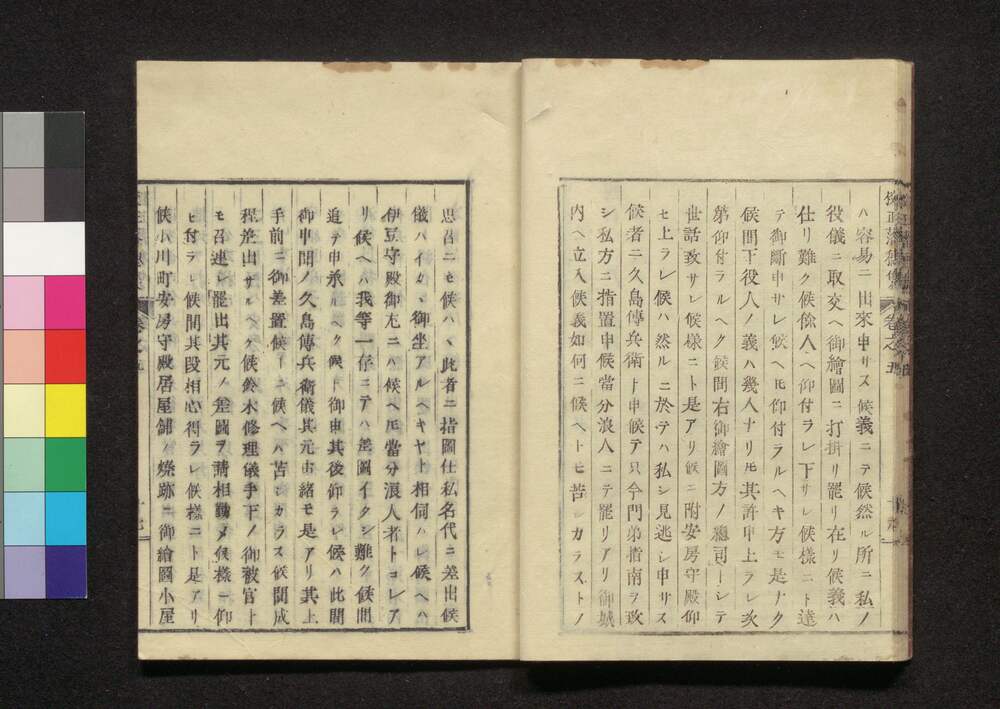 ハ容易ニ出來申サス候義ニテ候然ル所ニ私ノ
役儀ニ取交ヘ御繪圖ニ打掛リ罷リ在リ候義ハ
仕リ難ク候餘人ヘ仰付ラレ下サレ候樣ニト達
テ御斷申サレ候ヘ𪜈仰付ラルヘキ方モ是ナク
候間下役人ノ義ハ幾人ナリ𪜈其許申上ラレ次
第仰付ラルヘク候間右御繪圖方ノ總司トシテ
世話致サレ候樣ニト是アリ候ニ附安房守殿仰
セ上ラレ候ハ然ルニ於テハ私シ見逃シ申サス
候者ニ久島傳兵衞ト申候テ只今門弟指南ヲ致
シ私方ニ指置申候當分浪人ニテ罷リアリ御城
内ヘ立入候義如何ニ候ヘトモ苦シカラストノ
思召ニモ候ハヽ此者ニ指圖仕私名代ニ差出候
儀ハイカヽ御坐アルヘキヤト相伺ハレ候ヘハ
伊豆守殿御尤ニハ候ヘ𪜈當分浪人者トコレア
リ候ヘハ我等一存ニテハ差圖イタシ難ク候間
追テ申承ルヘク候ト御申其後仰ラレ候ハ此間
御申聞ノ久島傳兵衞儀其元由緒モ是アリ其上
手前ニ御差置候トニ候ヘハ苦シカラス候間成
程差出サルヘク候鈴木修理儀手下ノ御被官ト
モ召連レ罷出其元ノ差圖ヲ請相勤メ候樣ニ仰
セ付ラレ候間其段相心得ラレ候樣ニト是アリ
候小川町安房守殿居屋鋪ノ燒跡ニ御繪圖小屋